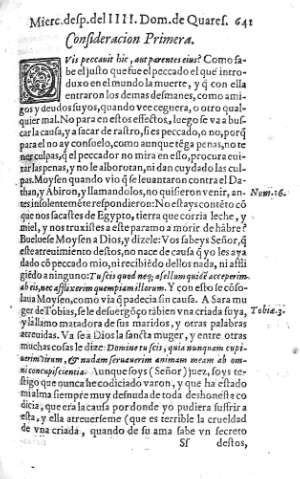 Mierc.desp.del IIII. Dom.de Quares. 641
Consideracion Primera.
QVis peccauit hic, aut parentes eius? Como sa-
be el justo que fue el peccado el que intro-
duxo en el mundo la muerte, y q̃ con ella
entraron los demas desmanes, como ami-
gos y deudos suyos, quando vee ceguera, o otro qual-
quier mal. No para en estos effectos, luego se va a bus-
car la causa, y a sacar de rastro, si es peccado, o no, porq̃
para el no ay consuelo, como aunque tẽga penas, no te
nga culpas, q̃ el peccador no mira en esso, procura eui-
tar las penas, y no le alborotan, ni dan cuydado las cul-
pas. Moysen quando vio q̃ se leuantaron contra el Da-
than, y Abiron, y llamandolos, no quisieron venir, an-
tes insolentemẽte respondieron: No estays contẽto cõ
que nos sacastes de Egypto, tierra que corria leche, y
miel, y nos truxistes a este paramo a morir de hãbre?
Bueluese Moysen a Dios, y dizele: Vos sabeys Señor, q̃
este atreuimiento destos, no nace de causa q̃ yo les aya
dado cõ peccado mio, ni recibiẽdo dellos nada, ni affli
giẽdo a ninguno: Tu scis quod neq; asellum quidẽ acceperim
ab eis, nec afflixerim quempiam illorum. Y con esto se cõso-
laua Moysen, como via q̃ padecia sin causa. A Sara mu
ger de Tobias, se le desuergõço tãbien vna criada suya,
y la llamo matadora de sus maridos, y otras palabras
atreuidas. Va se a Dios la sancta muger, y entre otras
muchas cosas le dize: Domine tu scis, quia nunquam cupi-
uerim virum, & mundam seruauerim animam meam ab om-
ni concupiscientia. Aunque soys (Señor) juez, soys tes-
tigo que nunca he codiciado varon, y que ha estado
mi alma siempre muy desnuda de toda deshonesta co
dicia, que era la causa por donde yo pudiera suffrir a
esta, y ella atreuerseme (que es terrible la crueldad
de vna criada, quando de su ama sabe vn secreto
Ss destos,
Num.16.
Tobiæ.3.